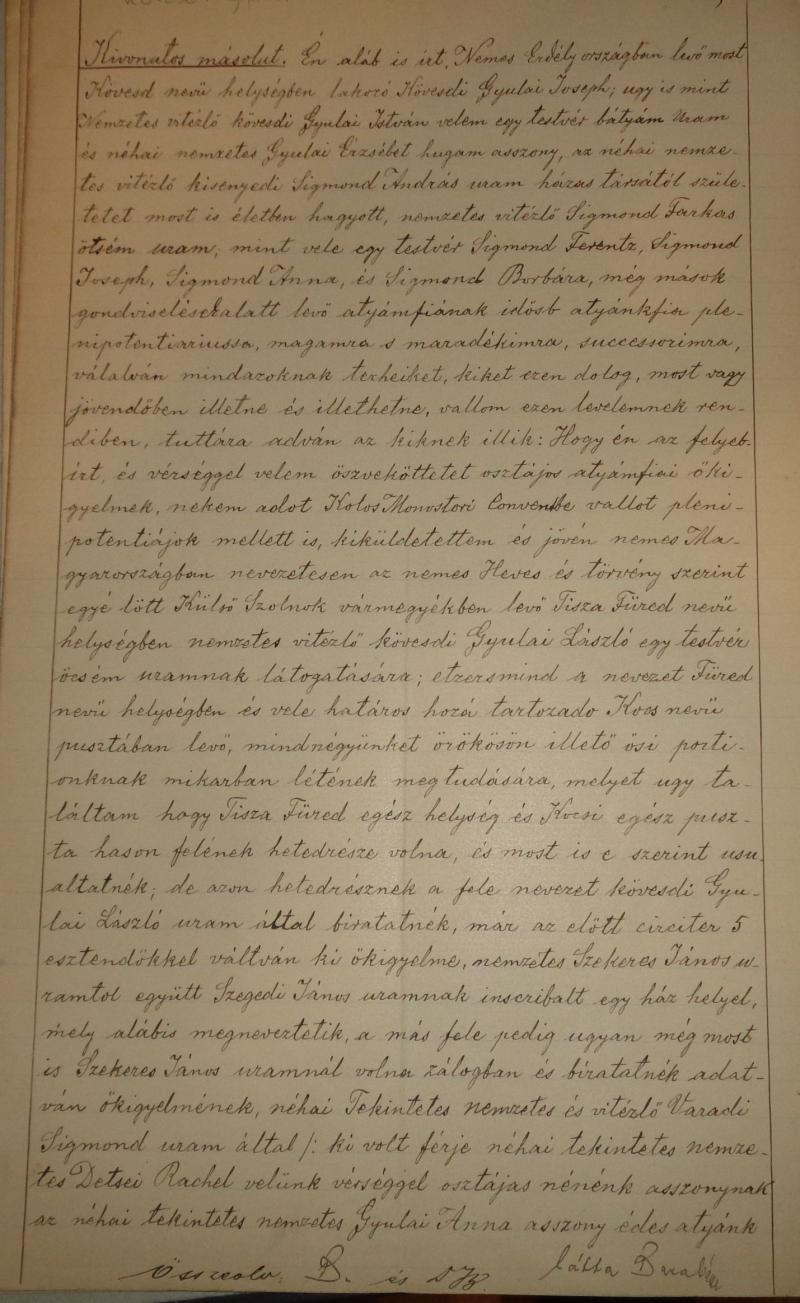 Kivonatos másolat. Én aláb is irt, Nemes Erdély országban levő most
Kövesd nevü helységben lakozó Kövesdi Gyulai Joseph; ugy is mint
Nemzetes vitézlő kövesdi Gyulai István velem egy testvér bátyám Uram
és néhai nemzetes Gyulai Erzsébet hugam asszony, az néhai nemze-
tes vitézlő kisenyedi Sigmond András uram házas társától szüle-
tetet most is életben hagyott, nemzetes vitézlő Sigmond Farkas
ötsém uram; mint vele egy testvér Sigmond Ferentz, Sigmond
Joseph, Sigmond Anna, és Sigmond Borbára, még mások
gondviselések alatt levő atyámfiának idősb atyánkfia ple-
nipotentiariussa, magamra s maradékimra, successorimra,
válalván mindazoknak terheiket, kiket ezen dolog, most vagy
jövendőben illetne és illethetne, vallom ezen levelemnek ren-
diben, tuttára adván az kiknek illik: Hogy én az felyeb-
irt, és vérséggel velem öszveköttetet osztájos atyámfiai őki-
gyelmek, nekem adot Kolos Monostori Conventbe vallot pleni-
potentiájok mellett is, kiküldetettem és jövén nemes Ma-
gyarországban nevezetesen az nemes Heves és törvény szerint
egyé lött Külső Szolnok vármegyékben levő Tisza Füred nevü
helységben nemzetes vitézlő kövesdi Gyulai László egy testvér
öcsém uramnak látogatására; etzersmind a nevezet Füred
nevü helységben és vele határos hozá tartozado Kocs nevü
pusztában levő, mindnégyünket örökösön illető ősi porti-
onknak mikarban létének megtudására, melyet ugy ta-
láltam hogy Tisza Füred egész helység és Kocsi egész pusz-
ta hason felének hetedrésze volna, és most is e szerint usu-
altatnék; de azon hetedrésznek a fele nevezet kövesdi Gyu-
lai László uram által biratatnék, már az előtt circiter 5
esztendőkkel váltván ki őkigyelme, nemzetes Szekeres János u-
ramtol együtt Szegedi János uramnak inscribalt egy ház helyel,
mely alábis megneveztetik, a más fele pedig ugyan még most
is Szekeres János uramnál volna zálogban és biratatnék adat-
ván őkigyelmének, néhai Tekintetes nemzetes és vitézlő Varadi
Sigmond uram által /: ki volt férje néhai tekintetes nemze-
tes Detsei Rachel velünk vérséggel osztájas nénénk asszonynak
az néhai tekintetes nemzetes Gyulai Anna asszony édes atyánk
B. és
látta